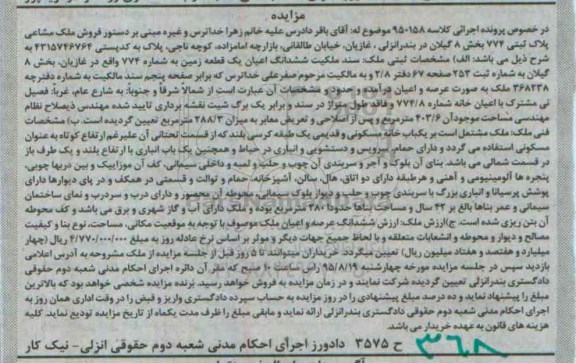 مزایده
در خصوص پرونده اجرائی کلاسه ۹۵۰۱۵۸ موضوع له: آقای باقر دادرس علیه خانم زهرا خداترس و غیره مبنی بر دستور فروش ملک مشاعی
پلاک ثبتی ۷۷۴ بخش ۸ گیلان در بندرانزلی ، غازیان، خیابان طالقانی، بازارچه امامزاده، کوچه ناجی، پلاک به کدپستی ۴۳۱۵۷۴۶۷۶۴ به
شرح ذیل می باشد: الف) مشخصات ثبتی ملک: سند مالکیت ششدانگ اعیان یک قطعه زمین به شماره ۷۷۴ واقع در غازیان، بخش ۸
گیلان به شماره ثبت ۲۵۳ صفحه ۶۷ دفتر ۲/۸ و به مالکیت مرحوم صفرعلی خداترس که برابر صفحه پنجم سند مالکیت به شماره دفترچه
۳۶۸۲۳۸ ملک به صورت عرصه و اعیان درآمده و حدود و مشخصات آن عبارت است از شمالا شرقا و جنوبا: به شارع عام، غربا: فصیل
ئی مشترک با اعیان خانه شماره ۷۷۴/۸ و فاقد طول متراژ در سند و برابر یک برگ شیت نقشه برداری تایید شده مهندس ذیصلاح نظام
مهندسی مساحت موجود آن ۴۰۳/۶ مترمربع و پس از اصلاحی و تعریض معابر به میزان ۲۸۸/۳ مترمربع تعیین گردیده است. ب) مشخصات
فنی ملک: ملک مشتمل است بر یکباب خانه مسکونی و قدیمی یک طبقه کرسی بلند که از قسمت تحتانی آن علیرغم ارتفاع کوتاه به عنوان
مسکونی استفاده می گردد و دارای حمام، سرویس و دستشویی و انباری در حیاط و همچنین یک باب انباری با ارتفاع بلند و یک طرف باز
در قسمت شمالی می باشد. بنای آن بلوک و آجر و سربندی آن چوب و حلب و لمبه و داخلی سیمانی، کف آن موزاییک و بین دربها چوبی،
پنجره ها آلومینیومی و آهنی و هرطبقه دارای دو اتاق، هال، سالن، آشپزخانه، حمام و توالت و قسمتی در همکف و در پای دیوارها دارای
پوشش پرسیانا و انباری بزرگ با سربندی چوب و حلب و دیوار بلوک سیمانی، محوطه آن محصور و دارای درب و سردرب و نمای ساختمان
سیمانی و عمر بناها بالغ بر ۴۲ سال و مساحت بناها حدودا ۳۸۰ مترمربع بوده و ملک دارای آب و گاز شهری و برق می باشد و کف محوطه
آن بتن ریزی شده است. ج) ارزش ملک: ارزش ششدانگ عرصه و اعیان ملک موصوف با توجه به موقعیت مکانی، مساحت، نوع بنا و کیفیت
مصالح و دیوار و محوطه و انشعابات متعلقه و با لحاظ جمیع جهات دیگر و موثر بر اساس نرخ عادله روز به مبلغ ۴/۷۷۰/۰۰۰/۰۰۰ ریال (چهار
میلیارد و هفتصد و هفتاد میلیون ریال) تعیین میگردد. خریداران میتوانند تا ۵ روز قبل از جلسه مزایده از ملک مشروحه به آدرس اعلامی
بازدید سپس در جلسه مزایده مورخه چهارشنبه ۹۵/۸/۱۹ راس ساعت ۱۰ صبح که مقر آن دائره اجرای احکام مدنی شعبه دوم حقوقی
دادگستری بندرانزلی تعیین گردیده شرکت نمایند و در زمان مزایده به فروش خواهد رسید. برنده مزایده شخصی خواهد بود که بالاترین
مبلغ را پیشنهاد نماید و ده درصد مبلغ پیشنهادی را در روز مزایده به حساب سپرده دادگستری واریز و فیش را در وقت اداری همان روز به
اجرای احکام مدنی شعبه دوم حقوقی دادگستری بندرانزلی ارائه نماید و مابقی مبلغ را ظرف مدت یکماه از تاریخ مزایده تودیع نماید. کلیه
هزینه های قانون به عهده خریدار می باشد.
ح ۳۵۷۵ دادورز اجرای احکام مدنی شعبه دوم حقوقی انزلی- نیک کار
۳۶۸